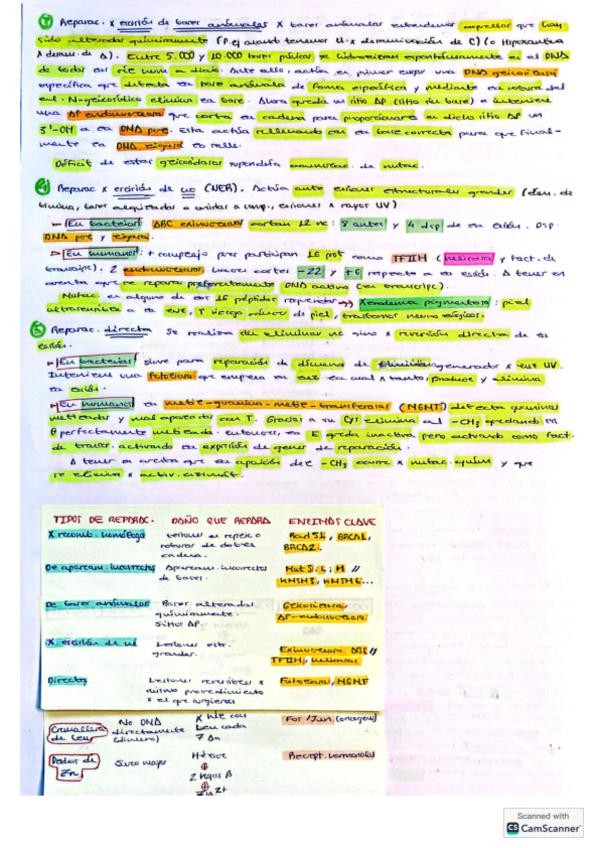 Reparac. x escisión de bases anómalas x bases anómalas entendemos aquellas que han
sido alteradas químicamente (P.ej cuando tenemos U x desaminación de C) (o Hipoxantina
de A). Entre 5.000 y 10.000 bases púricas se hidrolizan espontáneamente en el DNA
de todas las cel. hum a diario. Ante ello, actúa en primer lugar una DNA glicosidasa
específica que detecta la base anómala de forma específica y mediante la rotura del
enl. N-glicosídico elimina la base. Ahora queda un sitio AP (sitio sin base) e interviene
una AP endonucleasa que corta la cadena para proporcionar en dicho sitio AP un
3'-OH a la DNA pol. Esta actúa rellenando con la base correcta para que final-
mente la DNA ligasa lo selle.
Déficit de estas glicosidasas supondría de mutac.
Reparac x escisión de nc (NER). Actúa ante lesiones estructurales grandes (dím. de
timina, bases adquiridas o unidas a comp., lesiones x rayos UV)
En bacterias: ABC exinucleasa cortan 12 nc: 8 antes y 4 dsp de la lesión. Dsp
DNA pol y ligasa.
En humanos: + complejo pues participan 16 prot como TFIIH (helicasa y fact. de
transcripc). 2 endonucleasas hacen cortes -22 y +6 respecto a la lesión. A tener en
cuenta que se repara preferentemente DNA activo (en transcripc).
Mutac en alguno de los 16 péptidos repercute Xeroderma pigmentoso: piel
ultrasensible a la luz, ↑ riesgo cáncer de piel, trastornos neurológicos.
Reparac. directa Se realiza sin eliminar nc sino x reversión directa de la
lesión.
En bacterias sirve para reparación de dímeros de timina generados x luz UV.
Interviene una fotoliasa que emplea la luz la cual x tanto produce y elimina
la lesión.
En humanos la metil-guanina-metil-transferasa (MGMT) detecta guaninas
metiladas y mal apareadas con T. Gracias a su Cys elimina el -CH3 quedando
perfectamente metilada. Entonces, la E queda inactiva pero activando como fact.
de transcr. activando la expresión de genes de reparación.
A tener en cuenta que la aparición de -CH3 ocurre x mutac. quím y que
se elimina x activ. enzimát.
TIPOS DE REPARAC. DAÑO QUE REPARA ENZIMAS CLAVE
x recomb. homóloga Rad 51, BRCA1,
roturas de doble BRCA2.
cadena.
De apaream. incorrectos Apaream. incorrectos Mut S, L, H //
de bases. hMSH3, hMSH6...
De bases anómalas Bases alteradas Glicosidasa,
químicamente. AP-endonucleasa
Sitios AP.
x escisión de nc Lesiones estr. Exinucleasa ABC //
grandes. TFIIH, helicasas
Directa Lesiones reversibles x Fotoliasa, MGMT
mismo procedimiento
x el que surgieron
Cremallera de Leu No DNA directamente (dímero) x hélice con Leu cada 7 Aa For/Jun (oncogenes)
Dedos de Zn Surco mayor Hélice 2 hojas β Recept. hormonales
Scanned with
CS CamScanner